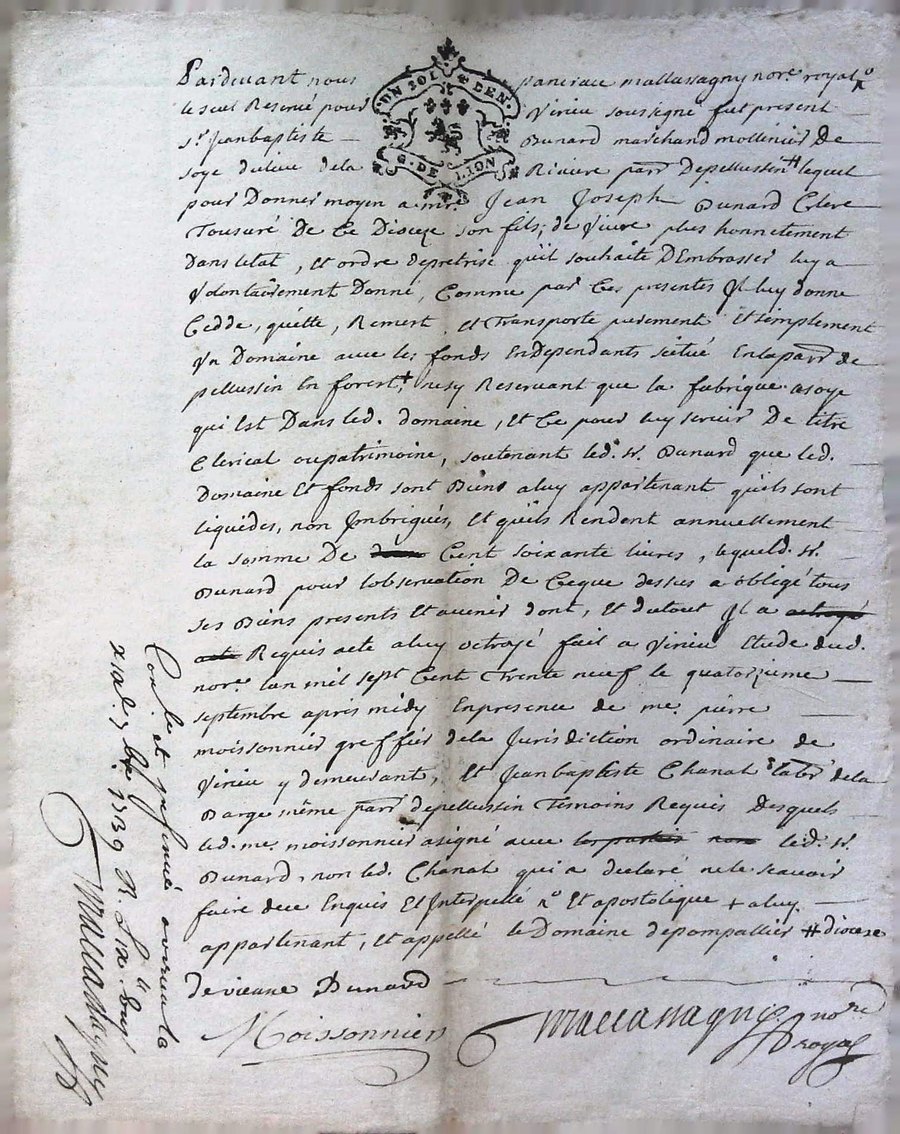 Pardevant nous pancrace mallassagny nore. royal
le seel Reservé pour Virieu soussigné fut present
sr. Jeanbaptiste — Dunard marchand mollinier De
soye du lieu dela Riviere parr. Depellussin # lequel
pour Donner moyen a mr. Jean Joseph Dunard Clerc
Tonsuré De Ce Dioceze son fils, de Vivre plus honnetement
Dans letat, Et ordre depretrise quil souhaite DEmbrasser luy a
Volontairement Donné, Comme par Ces presentes Jl luy donne
Cedde, quitte, Remest, Et Transporte purement Et simplement
Vn Domaine avec les fonds Endependants scitué Enlaparr. de
pellussin En forest, + nesy Reservant que la fabrique asoye
qui Est Dans led. domaine, Et Ce pour luy servir De titre
Clerical oupatrimoine, soutenant led. sr. Dunard que led.
Domaine Et fonds sont Biens aluy appartenant quils sont
liquides, non Jmbrigués, Et quils Rendent annuellement
la somme De Cent soixante livres, lequeld. sr.
Dunard pour lobservation De Ceque dessus a obligé tous
ses Biens presents Et avenir dont, Et dutout Jl a octroyé
acte Requis acte aluy octroyé fait a Virieu Etude dud.
nore. lan mil sept Cent Trente neuf le quatorzieme —
septembre apres midy Enpresence de me. pierre —
moissonnier greffier dela Jurisdiction ordinaire de
Virieu y demeurant, Et Jeanbaptiste Chanal labr dela
Barge même parr. depellussin Temoins Requis Desquels
led. me. moissonnier asigné avec les parties non led. sr.
Dunard, non led. Chanal qui a declaré nele scavoir
faire dece Enquis Et Interpellé Et apostolique + aluy —
appartenant, Et appellé le Domaine depompallier # diocese
de vienne Dunard
Moissonnier Mallassagny nore royal
UN SOL DEN.
G. DE LION
Con le et insinué avirieu la
1739 R.
Mallassagny